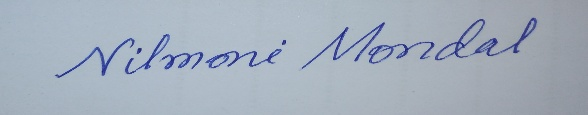 Nilmoni Mondal